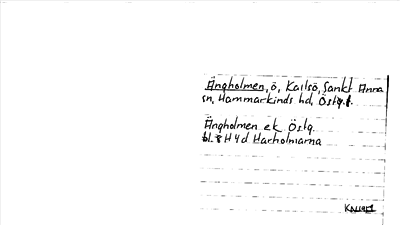 Ängholmen, ö, Kallsö, Sankt Anna
sn, Hammarkinds hd, Östg.
Ängholmen ek Östg.
bl. 8 H 4d Harholmarna